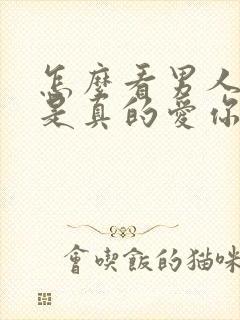 怎麼看男人
是真的愛你
會喫飯的猫咪